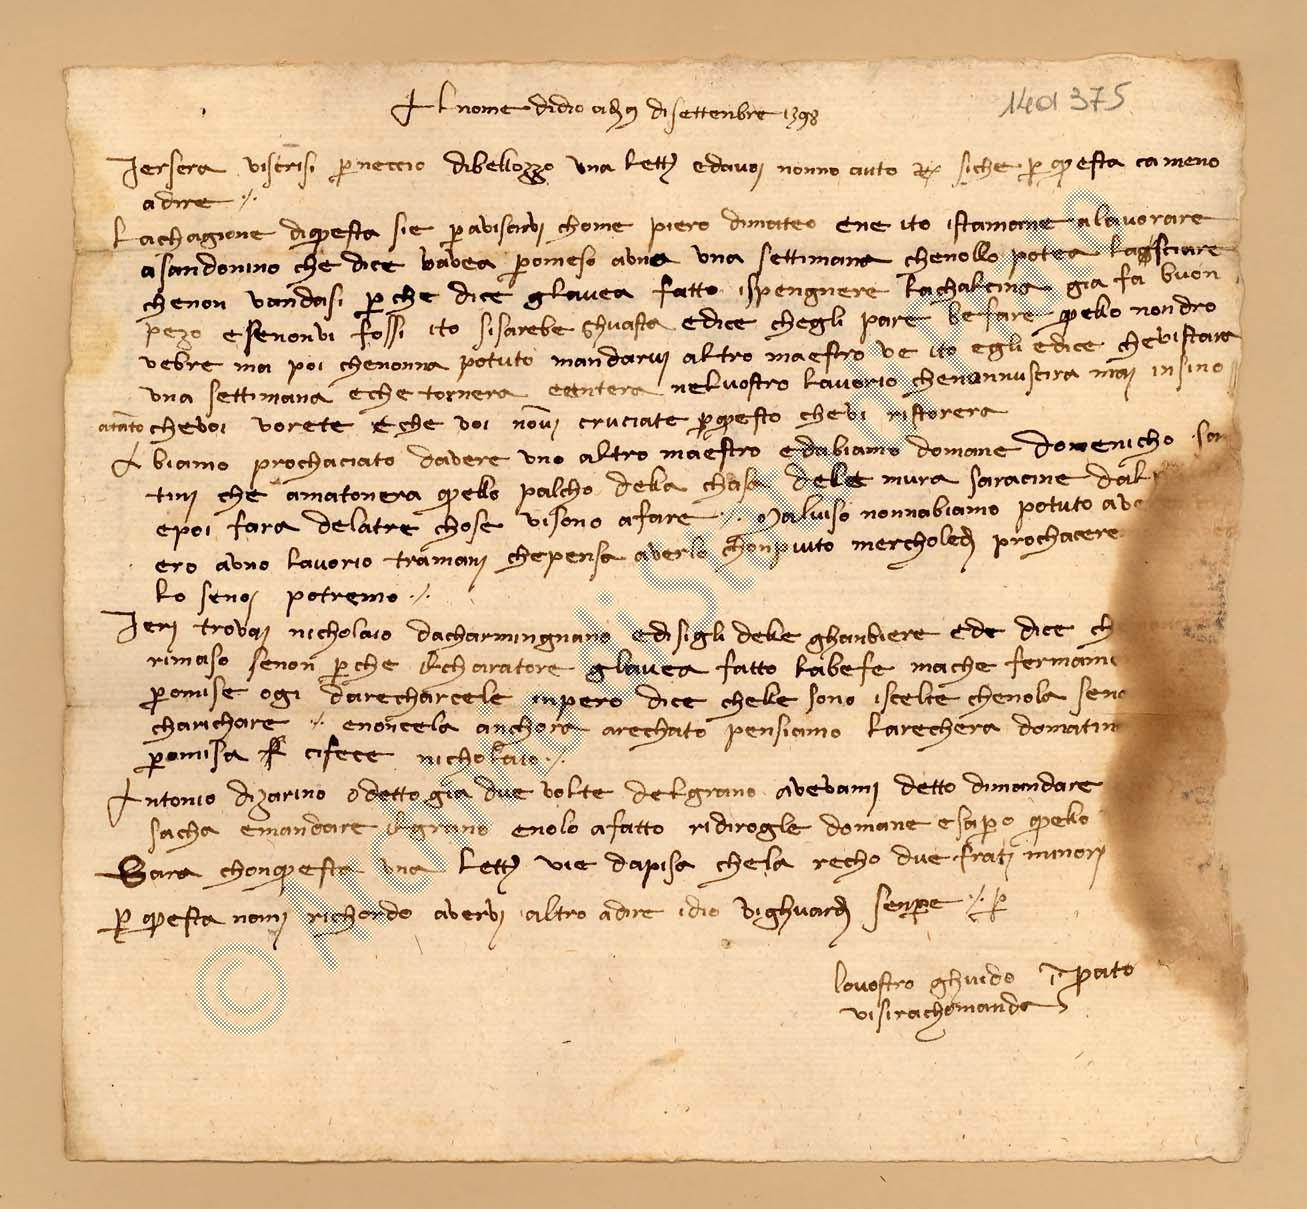 Al nome di dio a dì 9 di settenbre 1398
1401375
Jersera vi scrissi per neccio di bellozzo una lett. e da voi nonno auto R. siche per questa ca meno
a dire
La chagione di questa sie per avisarvi chome piero di mateo ene ito istamane a lavorare
a san donino che dice v'avea promeso a uno una settimana che nollo potea lassciare
che non v'andasi perche dice gl'avea fatto ispengnere la chalcina gia fa buon
pezo e se non vi fossi ito si sarebe ghuasta e dice che gli pare be fare quello non dro
vebre ma poi che nonna potuto mandarvi altro maestro v'e ito egli e dice che vi stara
una settimana e che tornera e entera nel vostro lavorio che nonn uscira mai insino
a tanto che voi vorete e che voi non vi cruciate per questo che vi ristorera
Abiamo prochaciato d'avere uno altro maestro ed abiamo domane domenicho san
tini che amatonera quello palcho della chasa dele mura saracine dal
e poi fara de l'altre chose vi sono a fare. Maluiso nonn abiamo potuto
ero a uno lavorio tramani che pensa averlo chonpiuto mercholedì prochacere
lo se noi potremo
Jeri trovai nicholaio da charmingnano e disigli dele ghanbiere ed e dice
rimaso se non perche il charatore gl'avea fatto la befe ma che
promise ogi darecharcele inpero dice chelle sono iscelte che nola
charichare e non ce l'a anchora arechato pensiamo l'arechera domatina
promisa ci fece nicholaio
Antonio di zarino o detto gia due volte del grano avevami detto di mandare
sacha e mandare il grano e nolo a fatto ridirogle domane e sapro quello
Sara chon questa una lett. vie da pisa che la recho due frati minori
per questa nonmi richordo avervi altro a dire idio vi ghuardi senpre
lo vostro ghuido in prato
vi si rachomanda
© Archivio di Stato